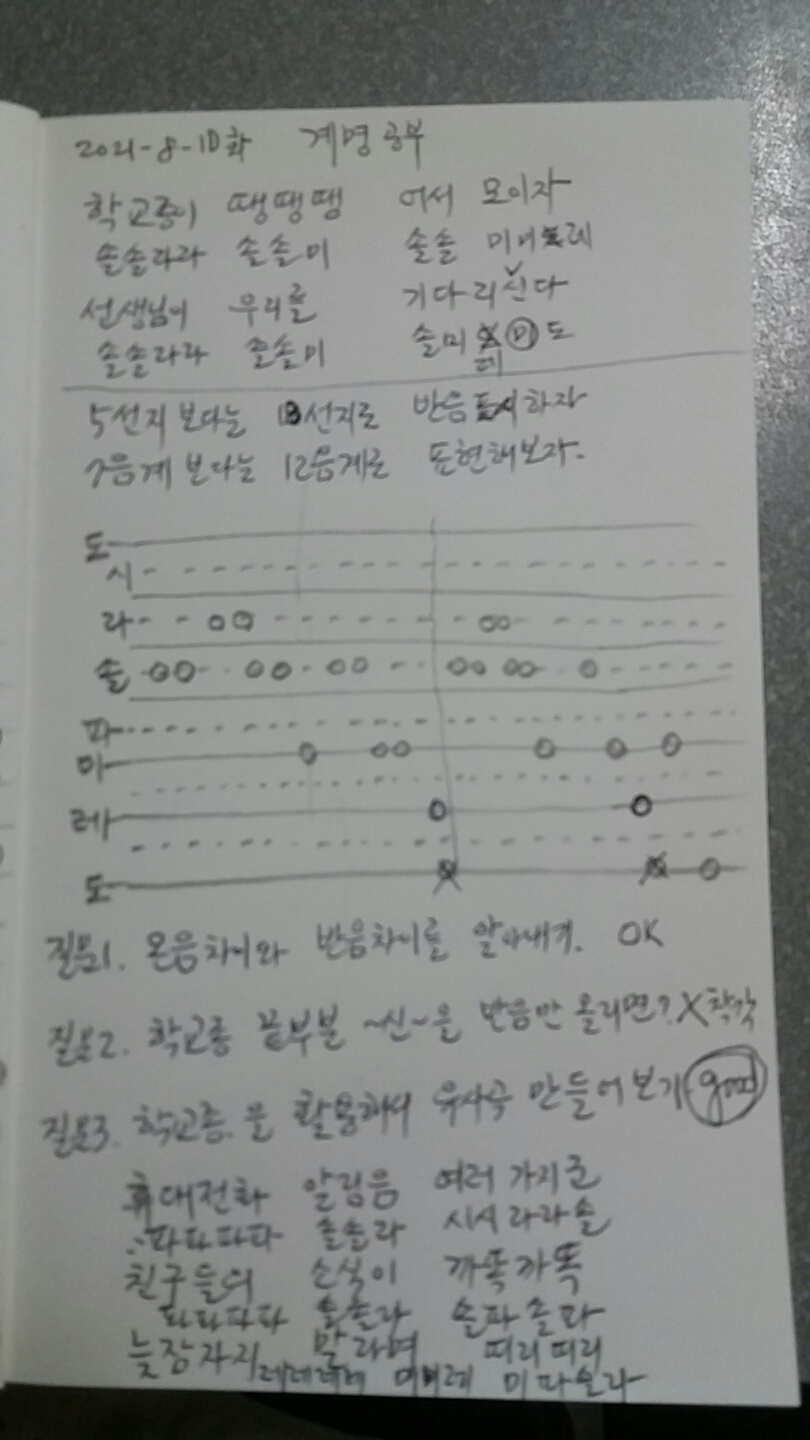 2021-8-10화 계명공부
학교종이 땡땡땡 어서 모이자
솔솔라라 솔솔미 솔솔 미미 레
선생님이 우리를 기다리신다
솔솔라라 솔솔미 솔미 레 미 도
5선지 보다는 13선지로 반음표시하자
7음계 보다는 12음계로 표현해보자.
도
시
라
솔
파
미
레
도
질문1. 온음차이와 반음차이를 알아내기. OK
질문2. 학교종 끝부분 ~신~을 반음만 올리면? X 착각
질문3. 학교종.을 활용하여 유사곡 만들어보기 good
휴대전화 알림음 여러가지로
파파파파 솔솔라 시시라라솔
친구들의 소식이 까똑까똑
파파파파 솔솔라 솔파솔파
늦장자지 말라며 띠리띠리
레레레레 미미레 미파솔라